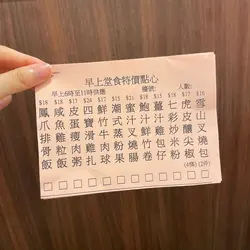 早上堂食特價點心
早上6時至11時供應 檯號: 人數:
$18 鳳爪排骨飯
$18 咸魚雞粒飯
$17 皮蛋瘦肉粥
四寶滑雞扎
鮮竹牛肉球
潮式蒸粉果
蜜汁叉燒腸
鮑汁鮮竹卷
薑汁雞包仔
七彩炒米粉
虎皮釀尖椒
雪山叉燒包